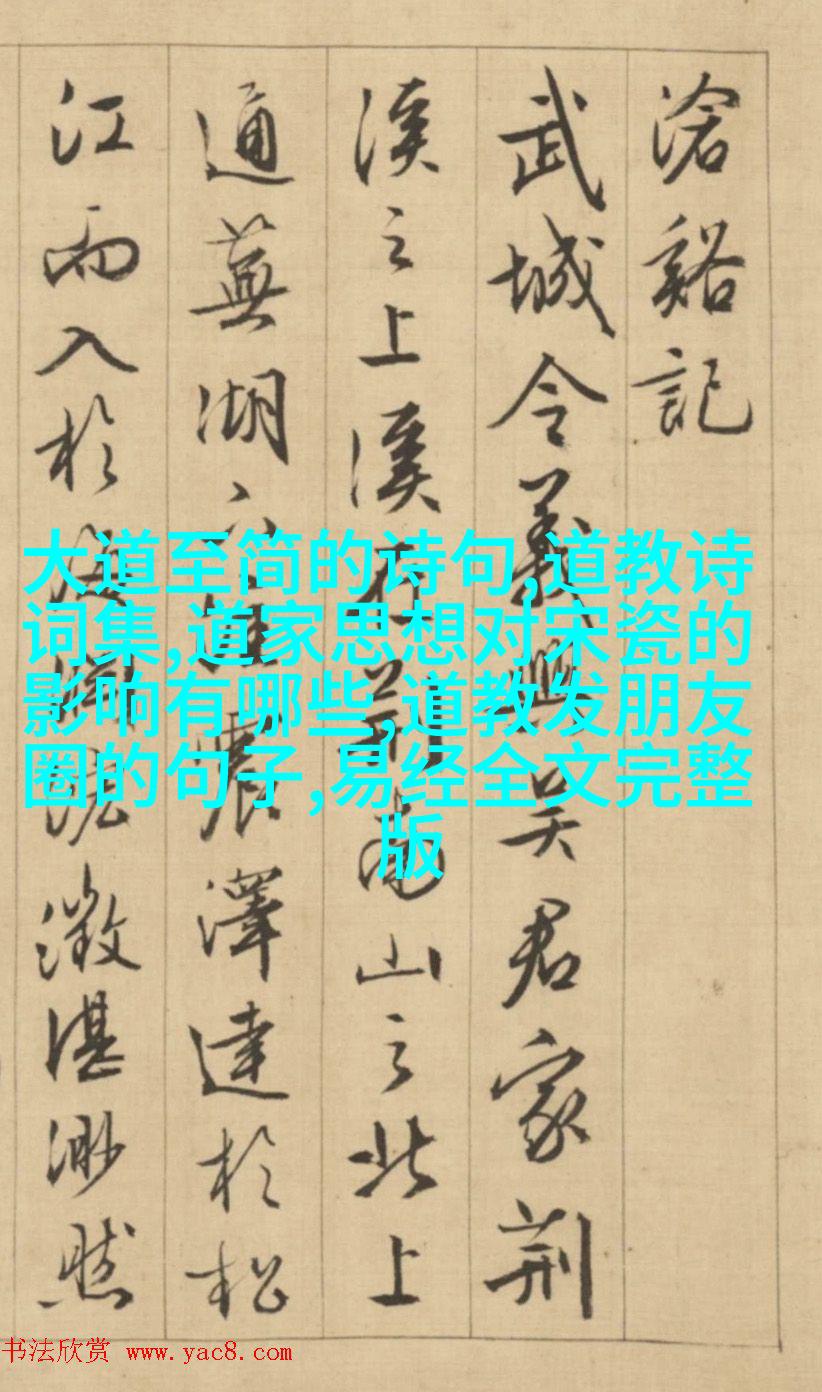 滄谿記
武城令義興吴君家荆
溪之上溪在荆南山之北上
通蕪湖震澤達於松
江而入於海澂湛渺然
大道至简的诗句,道教诗
词集,道家思想对宋瓷的
影响有哪些,道教发朋友
圈的句子,易经全文完整
版
书法欣赏 www.yac8.com